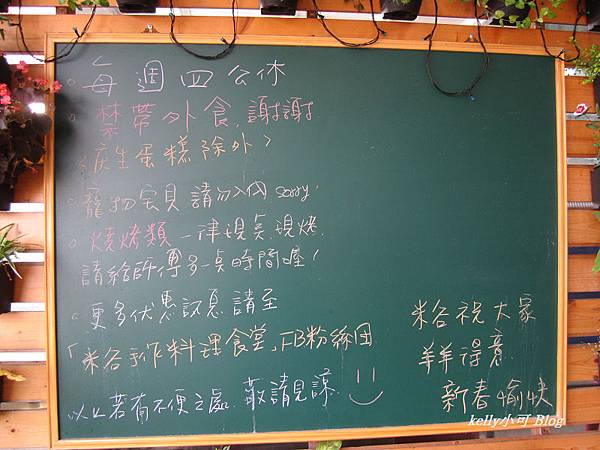 。每週四公休
。禁帶外食.謝謝!
<慶生蛋糕除外>
。寵物宝貝請勿入內 sorry!
。燒烤類一律現点現烤.
請給師傅多一点時間喔!
。更多优惠訊息請至
「米谷手作料理食堂」FB粉絲団
以上若有不便之處.敬請見諒.
米谷祝大家
羊羊得意.
新春愉快
kelly小可 Blog